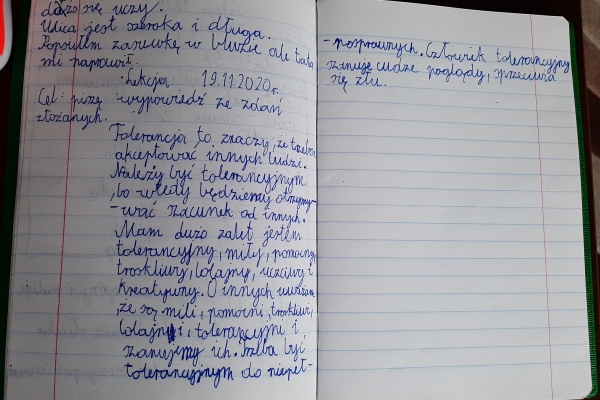 dużo się uczy.
Ulica jest szeroka i długa.
Popsiułem zasuwkę w bluzie ale tata
mi naprawił.
Lekcja 19.11.2020r.
Cel: piszę wypowiedź ze zdań
złożanych.
Tolerancja to znaczy, że trzeba
akceptować innych ludzi.
Należy być tolerancyjnym
, bo wtedy będziemy otrzymy-
-wać szacunek od innych.
Mam dużo zalet jestem
tolerancyjny, miły, pomocny,
troskliwy, lolajny, uczciwy i
kreatywny. O innych uważam,
że są mili, pomocni, troskliwi,
lolajni, tolerancyjni i
szanujemy ich. Trzeba być
tolerancyjnym do niepeł-
-nosprawnych. Człowiek tolerancyjny
szanuje cudze poglądy, sprzeciwia
się złu.